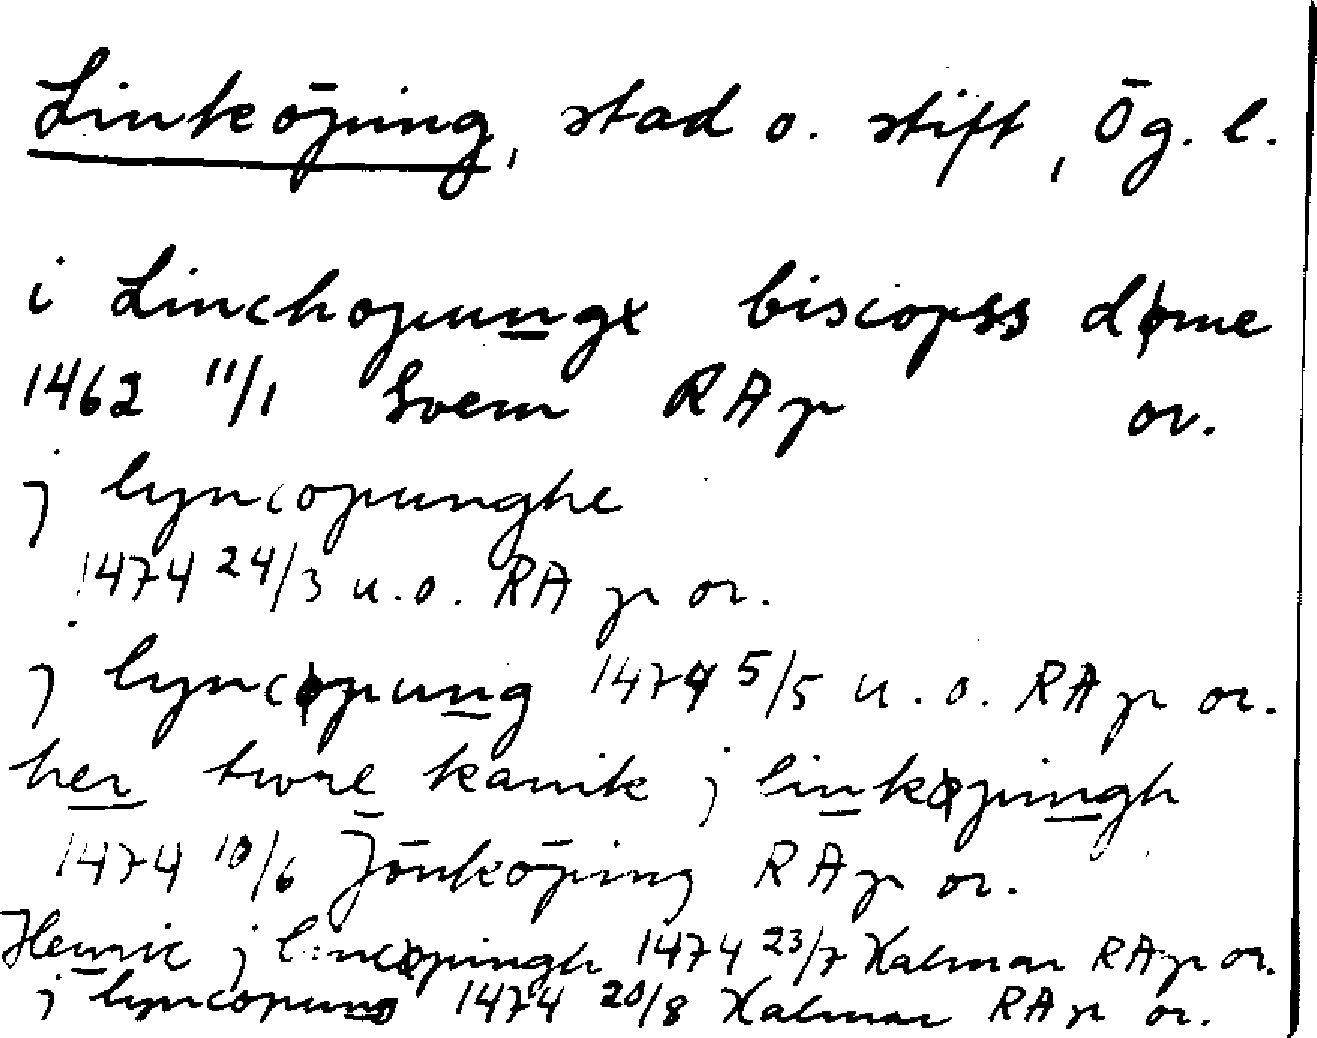 Linköping, stad o. stift, Ög. l.
i Linchopungx biscopss døme
1462 11/1 Svem RAp or.
j lyncopunghe
1474 24/3 u.o. RAp or.
j lyncøpung 1474 5/5 u.o. RAp or.
her twre kanik j linkøpingh
1474 10/6 Jönköping RAp or.
Henric j lincøpingh 1474 23/7 Kalmar RAp or.
j lyncopung 1474 20/8 Kalmar RAp or.